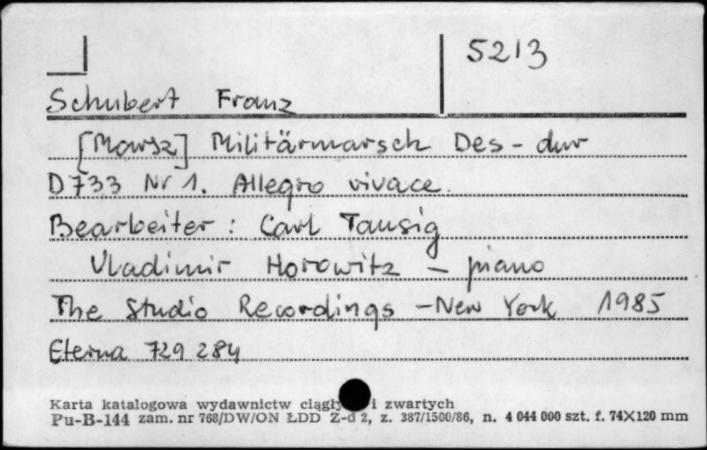 5213
Schubert Franz
[Marsz] Militärmarsch Des-dur
D733 Nr 1. Allegro vivace.
Bearbeiter: Carl Tausig
Vladimir Horowitz - piano
The Studio Recordings - New York 1985
Eterna 729 284
Karta katalogowa wydawnictw i zwartych
Pu-B-144 zam. nr 768/DW/ON ŁDD Z-d 2, z. 387/1500/86, n. 4 044 000 szt. f. 74X120 mm